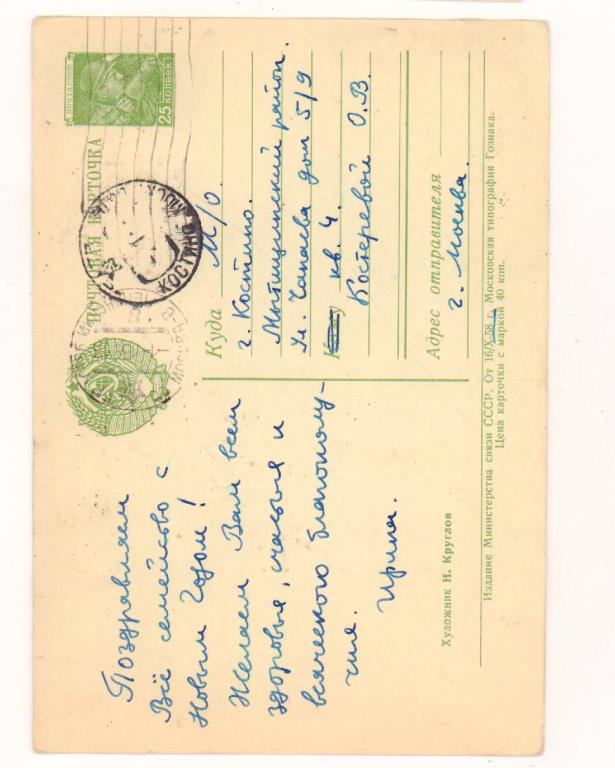 ПОЧТОВАЯ КАРТОЧКА
ПОЧТА СССР
25 КОПЕЕК
КОСТИНО
МОСКВА
Поздравляем
Всё семейство с
Новым Годом!
Желаем Вам всем
здоровья, счастья и
всяческого благополу-
чия.
Ирина.
Художник Н. Круглов
Куда М/О.
г. Костино.
Мытищинский район.
Ул. Чапаева дом 5/9
кв. 4.
Костеревой О.В.
Адрес отправителя
г. Москва.
Издание Министерства связи СССР. От 16/X-58 г. Московская типография Гознака.
Цена карточки с маркой 40 коп.